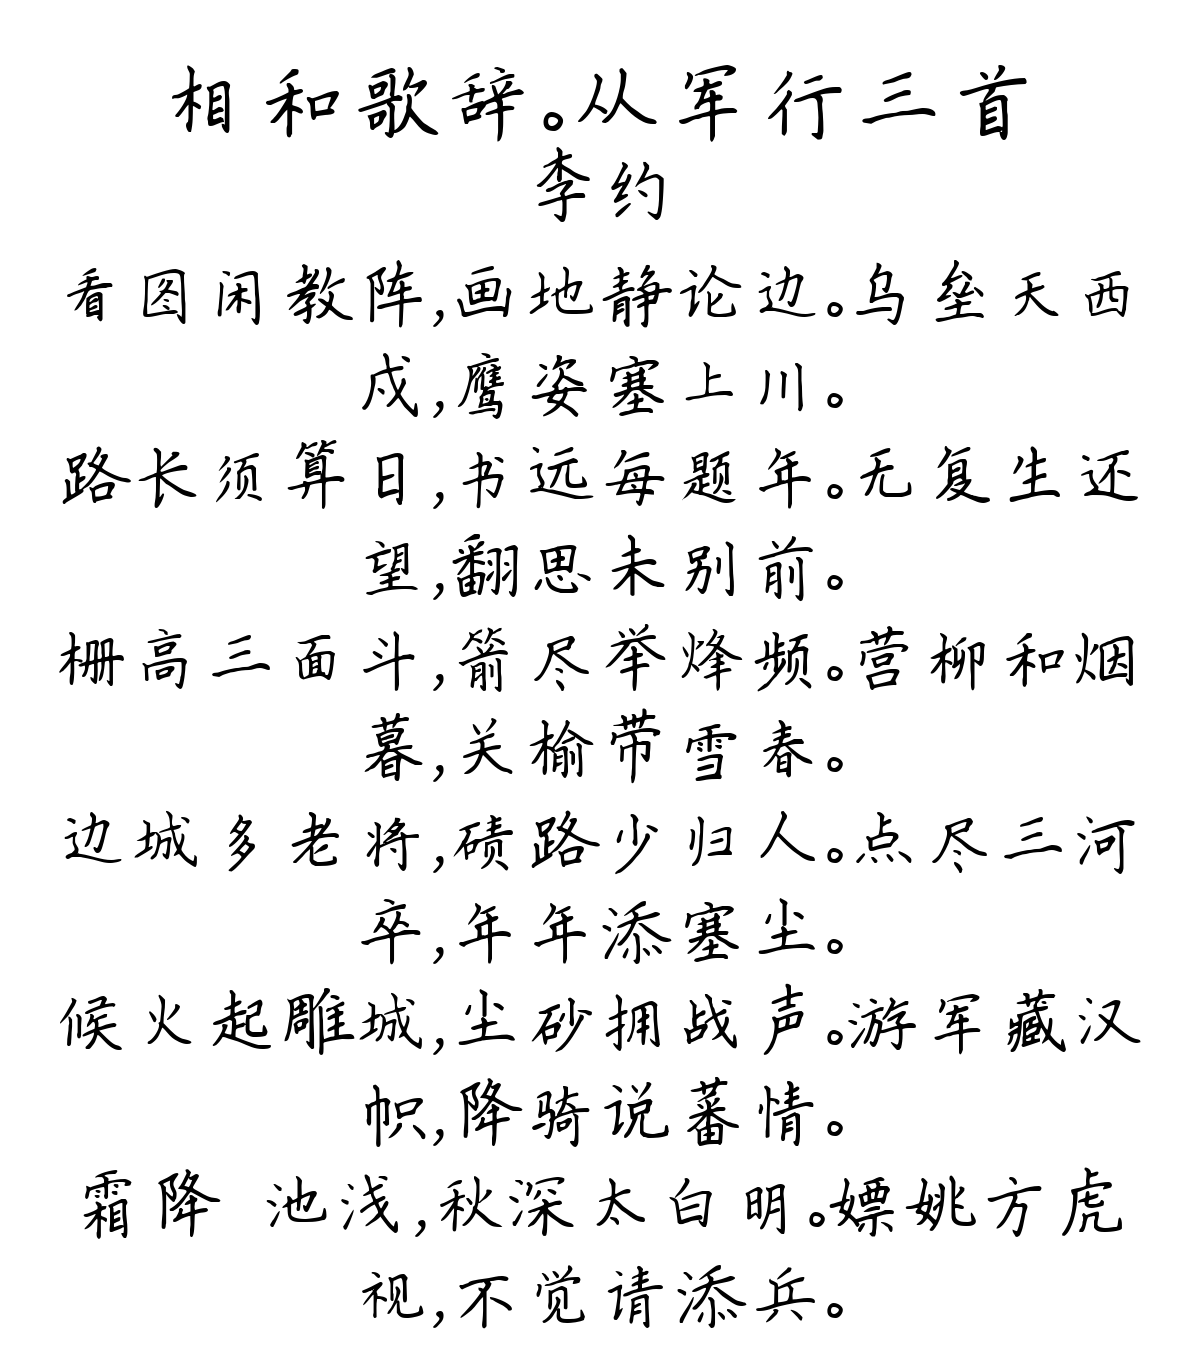 相和歌辞。从军行三首
李约
看图闲教阵,画地静论边。乌垒天西
戍,鹰姿塞上川。
路长须算日,书远每题年。无复生还
望,翻思未别前。
栅高三面斗,箭尽举烽频。营柳和烟
暮,关榆带雪春。
边城多老将,碛路少归人。点尽三河
卒,年年添塞尘。
候火起雕城,尘砂拥战声。游军藏汉
帜,降骑说蕃情。
霜降 池浅,秋深太白明。嫖姚方虎
视,不觉请添兵。